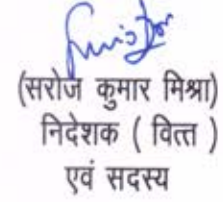 (सरोज कुमार मिश्रा)
निदेशक ( वित्त )
एवं सदस्य